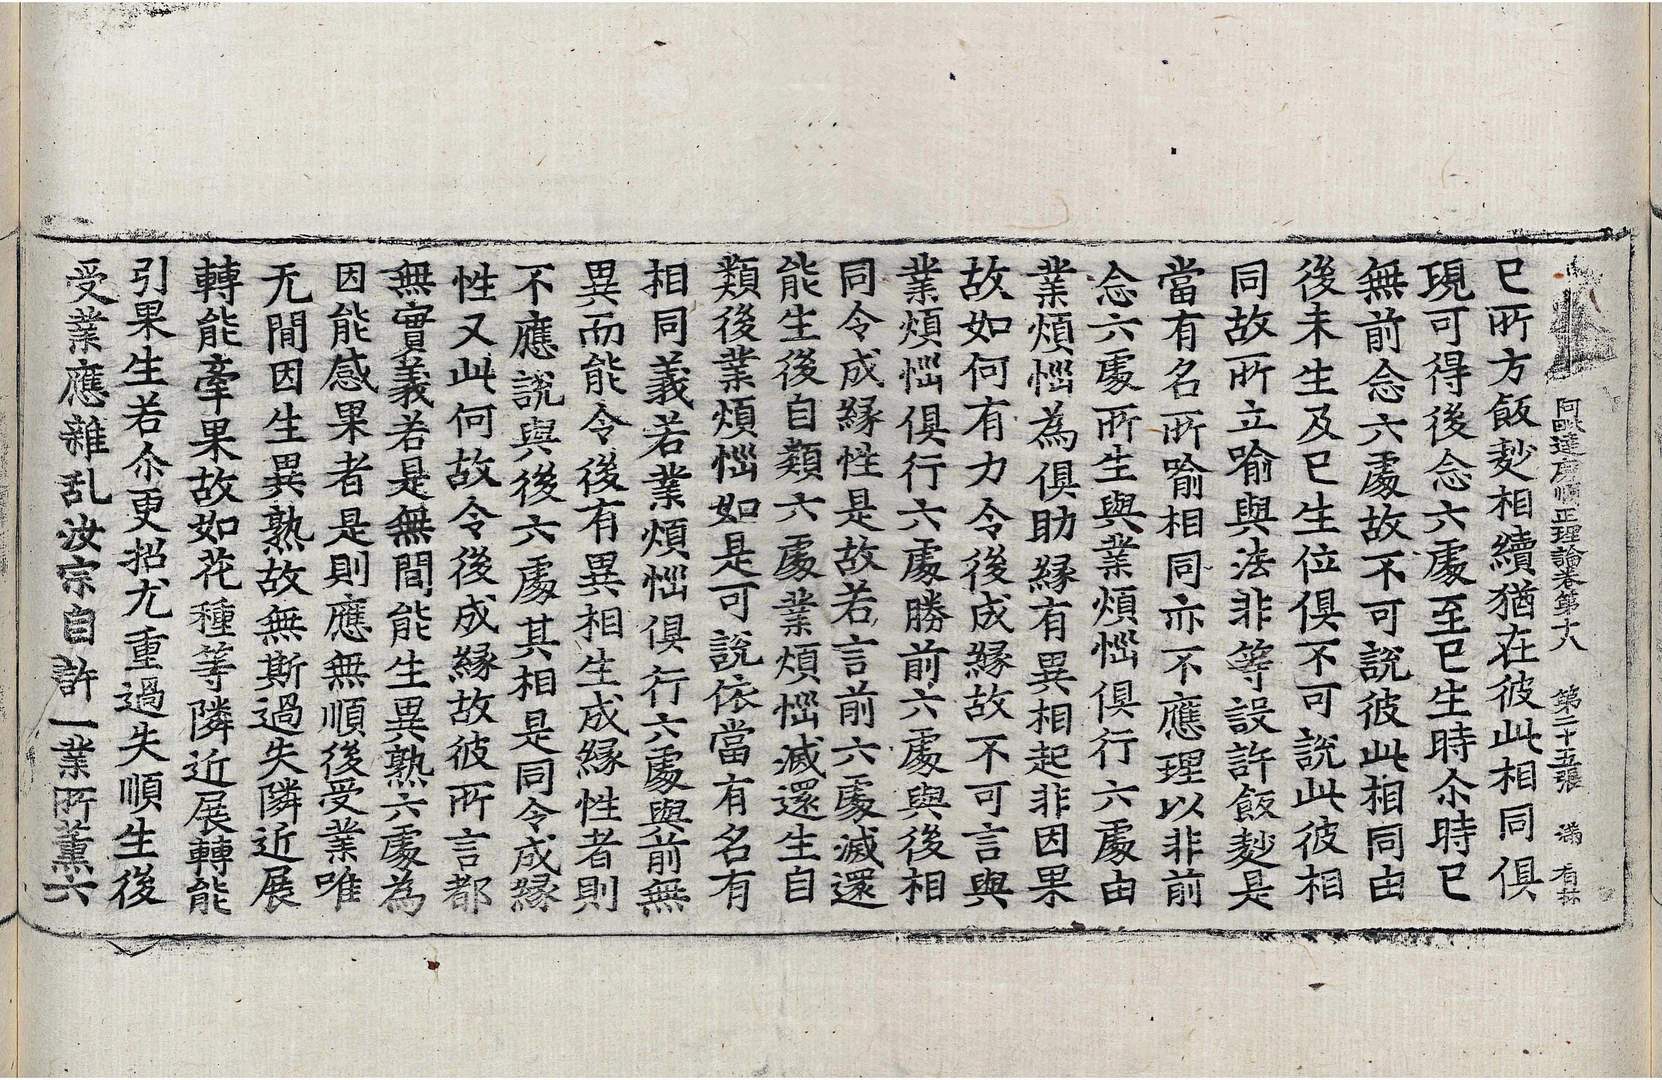 阿毗達磨順正理論卷第十八 第二十五張 滿 有林
已所方飯麨相續猶在彼此相同俱
現可得後念六處至已生時尒時已
無前念六處故不可說彼此相同由
後未生及已生位俱不可說此彼相
同故所立喻與法非等設許飯麨是
當有名所喻相同亦不應理以非前
念六處所生與業煩惱俱行六處由
業煩惱為俱助縁有異相起非因果
故如何有力令後成縁故不可言與
業煩惱俱行六處勝前六處與後相
同令成縁性是故若言前六處滅還
能生後自類六處業煩惱滅還生自
類後業煩惱如是可說依當有名有
相同義若業煩惱俱行六處與前無
異而能令後有異相生成縁性者則
不應說與後六處其相是同令成縁
性又此何故令後成縁故彼所言都
無實義若是無間能生異熟六處為
因能感果者是則應無順後受業唯
无間因生異熟故無斯過失隣近展
轉能牽果故如花種等隣近展轉能
引果生若尒更招尤重過失順生後
受業應雜乱汝宗自許一業所薰六